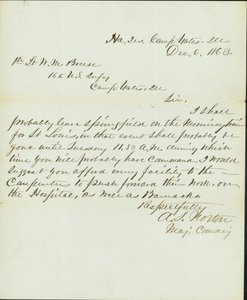 Hd. Qrs. Camp Yates, Ill
Dec. 6, 1863.
1st Lt. W. M.
16th U.S. Infy
Camp Yates, Ill
Sir,
I shall
probably leave Springfield on the Morning train
for St Louis, in that event shall probably be
gone until Tuesday 11.30 A.M. during which
time you will probably have Command, I would
suggest you afford every facility to the
Carpenters to push forward their work, on
the Hospital, as well as Barracks
Respectfully
A. S.
Maj. Comdg